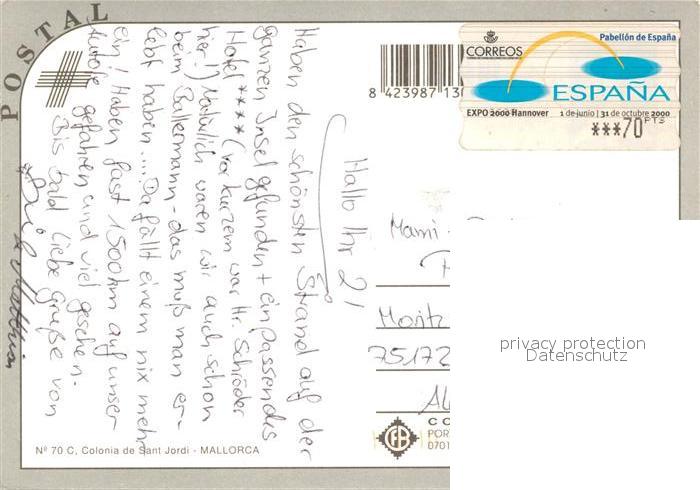 POSTAL
Hallo Ihr 2!
Haben den schönsten Strand auf der
ganzen Insel gefunden + ein passendes
Hotel **** (vor kurzem war Hr. Schröder
hier!) Natürlich waren wir auch schon
beim Ballermann - das muß man er-
lebt haben.... Da fällt einem nix mehr
ein! Haben fast 1500km auf unser
Autole gefahren und viel gesehen.
Bis bald liebe Grüße von
Nº 70 C, Colonia de Sant Jordi - MALLORCA
8 423987 130
CORREOS
Pabellón de España
ESPAÑA
EXPO 2000 Hannover 1 de junio | 31 de octubre 2000
***70 PTS
Mami
Moritz
75172
privacy protection
Datenschutz